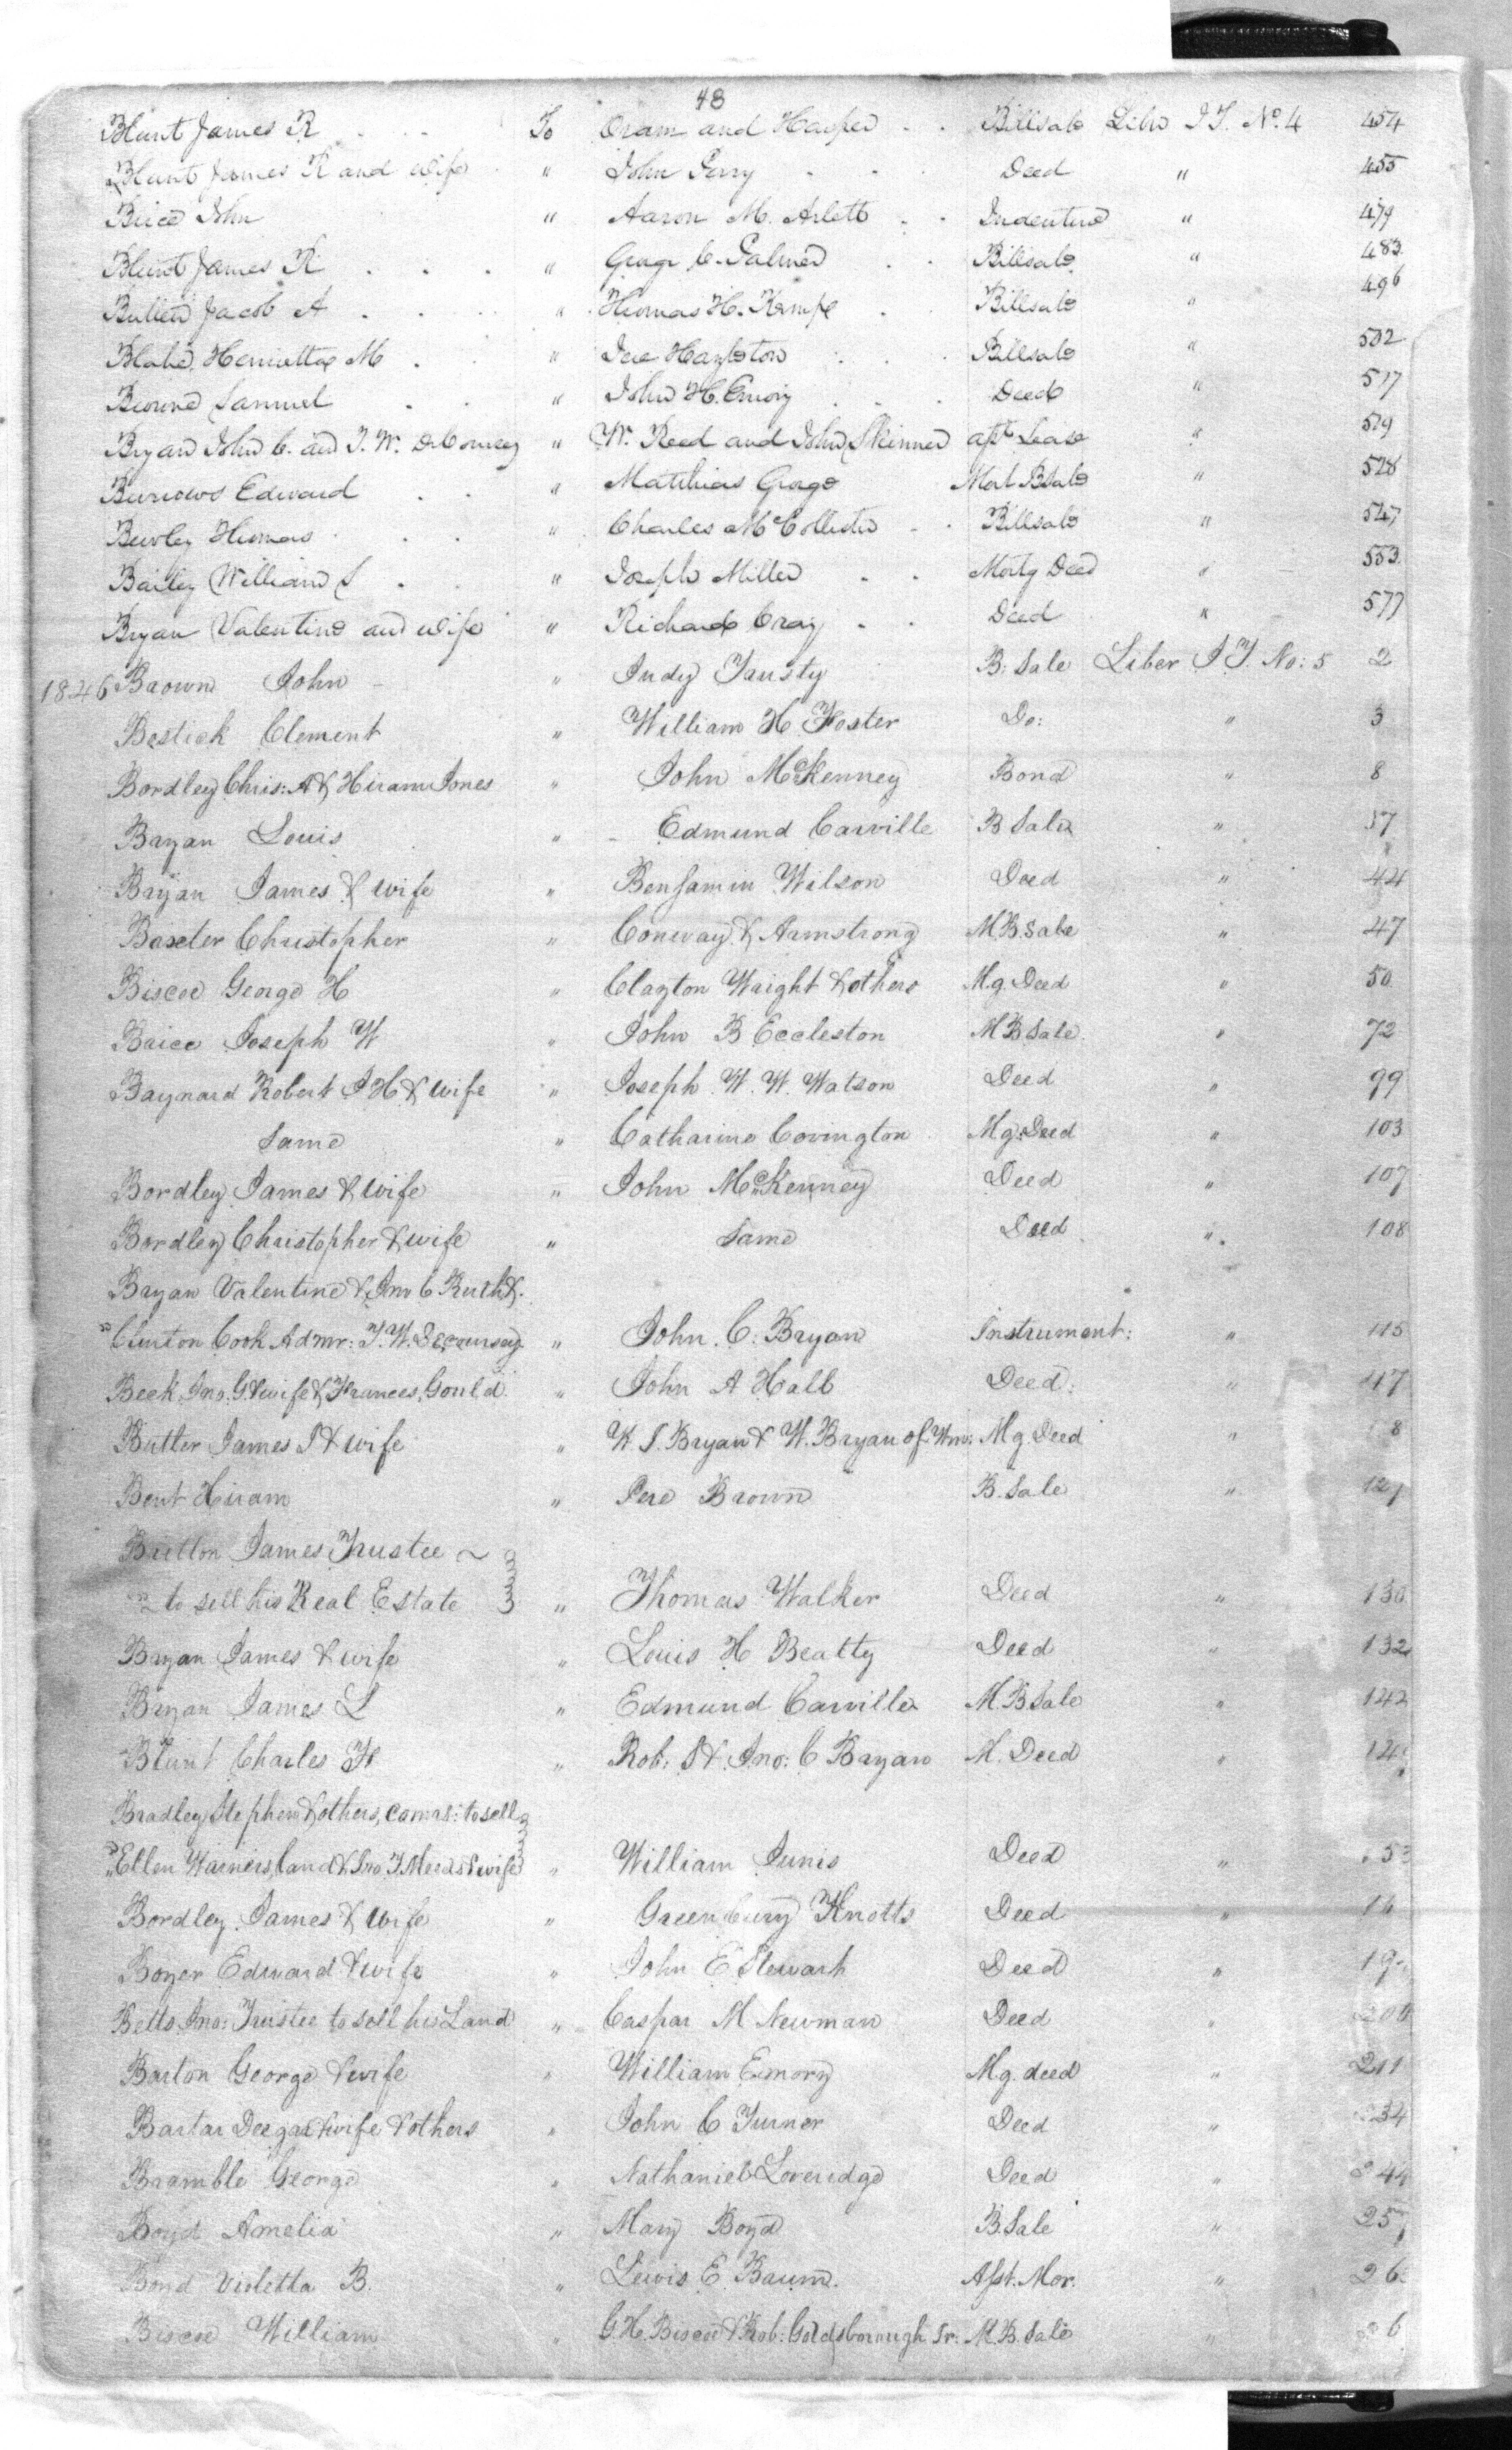 48
Blunt James R To Oram and Harper Billsale Liber J T. No. 4 454
Blunt James R and wife " John Perry Deed " 455
Brice John " Aaron M. Arlett Indenture " 479
Blunt James R " George C. Palmer Billsale " 483
Bullen Jacob A " Thomas H. Kemp Billsale " 496
Blake Henrietta M " Pere Hazleton Billsale " 502
Browne Samuel " John H. Emory Deed " 517
Bryan John C. and T. W. DeCoursey " W. Reed and John Skinner asst Lease " 519
Burrows Edward " Matthias George Mort BSale " 528
Burley Thomas " Charles McCollister Billsale " 547
Bailey William S " Joseph Miller Mortg Deed " 553
Bryan Valentine and wife " Richard Cray Deed " 577
1846 Brown John " Judy Fausty B: Sale Liber J T. No: 5 2
Bostick Clement " William H Foster Do: " 3
Bordley Chris: A & Hiram Jones " John McKenney Bond " 8
Bryan Louis " Edmund Carville B Sale " 37
Bryan James & wife " Benjamin Wilson Deed " 44
Baxter Christopher " Conway & Armstrong M B. Sale " 47
Biscoe George H " Clayton Wright & others Mg. Deed " 50
Brice Joseph W " John B Eccleston M B Sale " 72
Baynard Robert J H & wife " Joseph W. W. Watson Deed " 99
Same " Catharine Covington Mg. Deed " 103
Bordley James & wife " John McKenney Deed " 107
Bordley Christopher & wife " Same Deed " 108
Bryan Valentine & Jno C Ruth &
" Clinton Cook Admr: T. W. Decoursey " John. C. Bryan Instrument: " 115
Beck Jno. G. & wife & Frances Gould " John A Hall Deed: " 117
Butler James S & wife " W. S. Bryan & W. Bryan of Wm: Mg. Deed " 8
Bent Hiram " Pere Brown B. Sale " 121
Britton James Trustee
to sell his Real Estate " Thomas Walker Deed " 130
Bryan James & wife " Louis H Beatty Deed " 132
Bryan James L " Edmund Carville M. B Sale " 142
Blunt Charles H " Rob: S & Jno: C Bryan M. Deed " 14
Bradley Stephen & others, Comrs: to sell
" Ellen Warners, land & Jno. T. Meeds & wife " William Junis Deed " 53
Bordley James & wife " Greenbury Knotts Deed " 16
Boyer Edward & wife " John E Stewart Deed " 19
Betts Jno: Trustee to sell his Land " Caspar M Newman Deed " 208
Barton George & wife " William Emory Mg. deed " 211
Bartar & wife & others " John C Turner Deed " 234
Bramble George " Nathaniel Loveridge Deed " 244
Boyd Amelia " Mary Boyd B. Sale " 25
Bond Violetta B. " Lewis E Baum. Asst. Mor. " 26
Biscoe William " G. H. Biscoe & Rob: Goldsborough Sr: M. B. Sale " 6